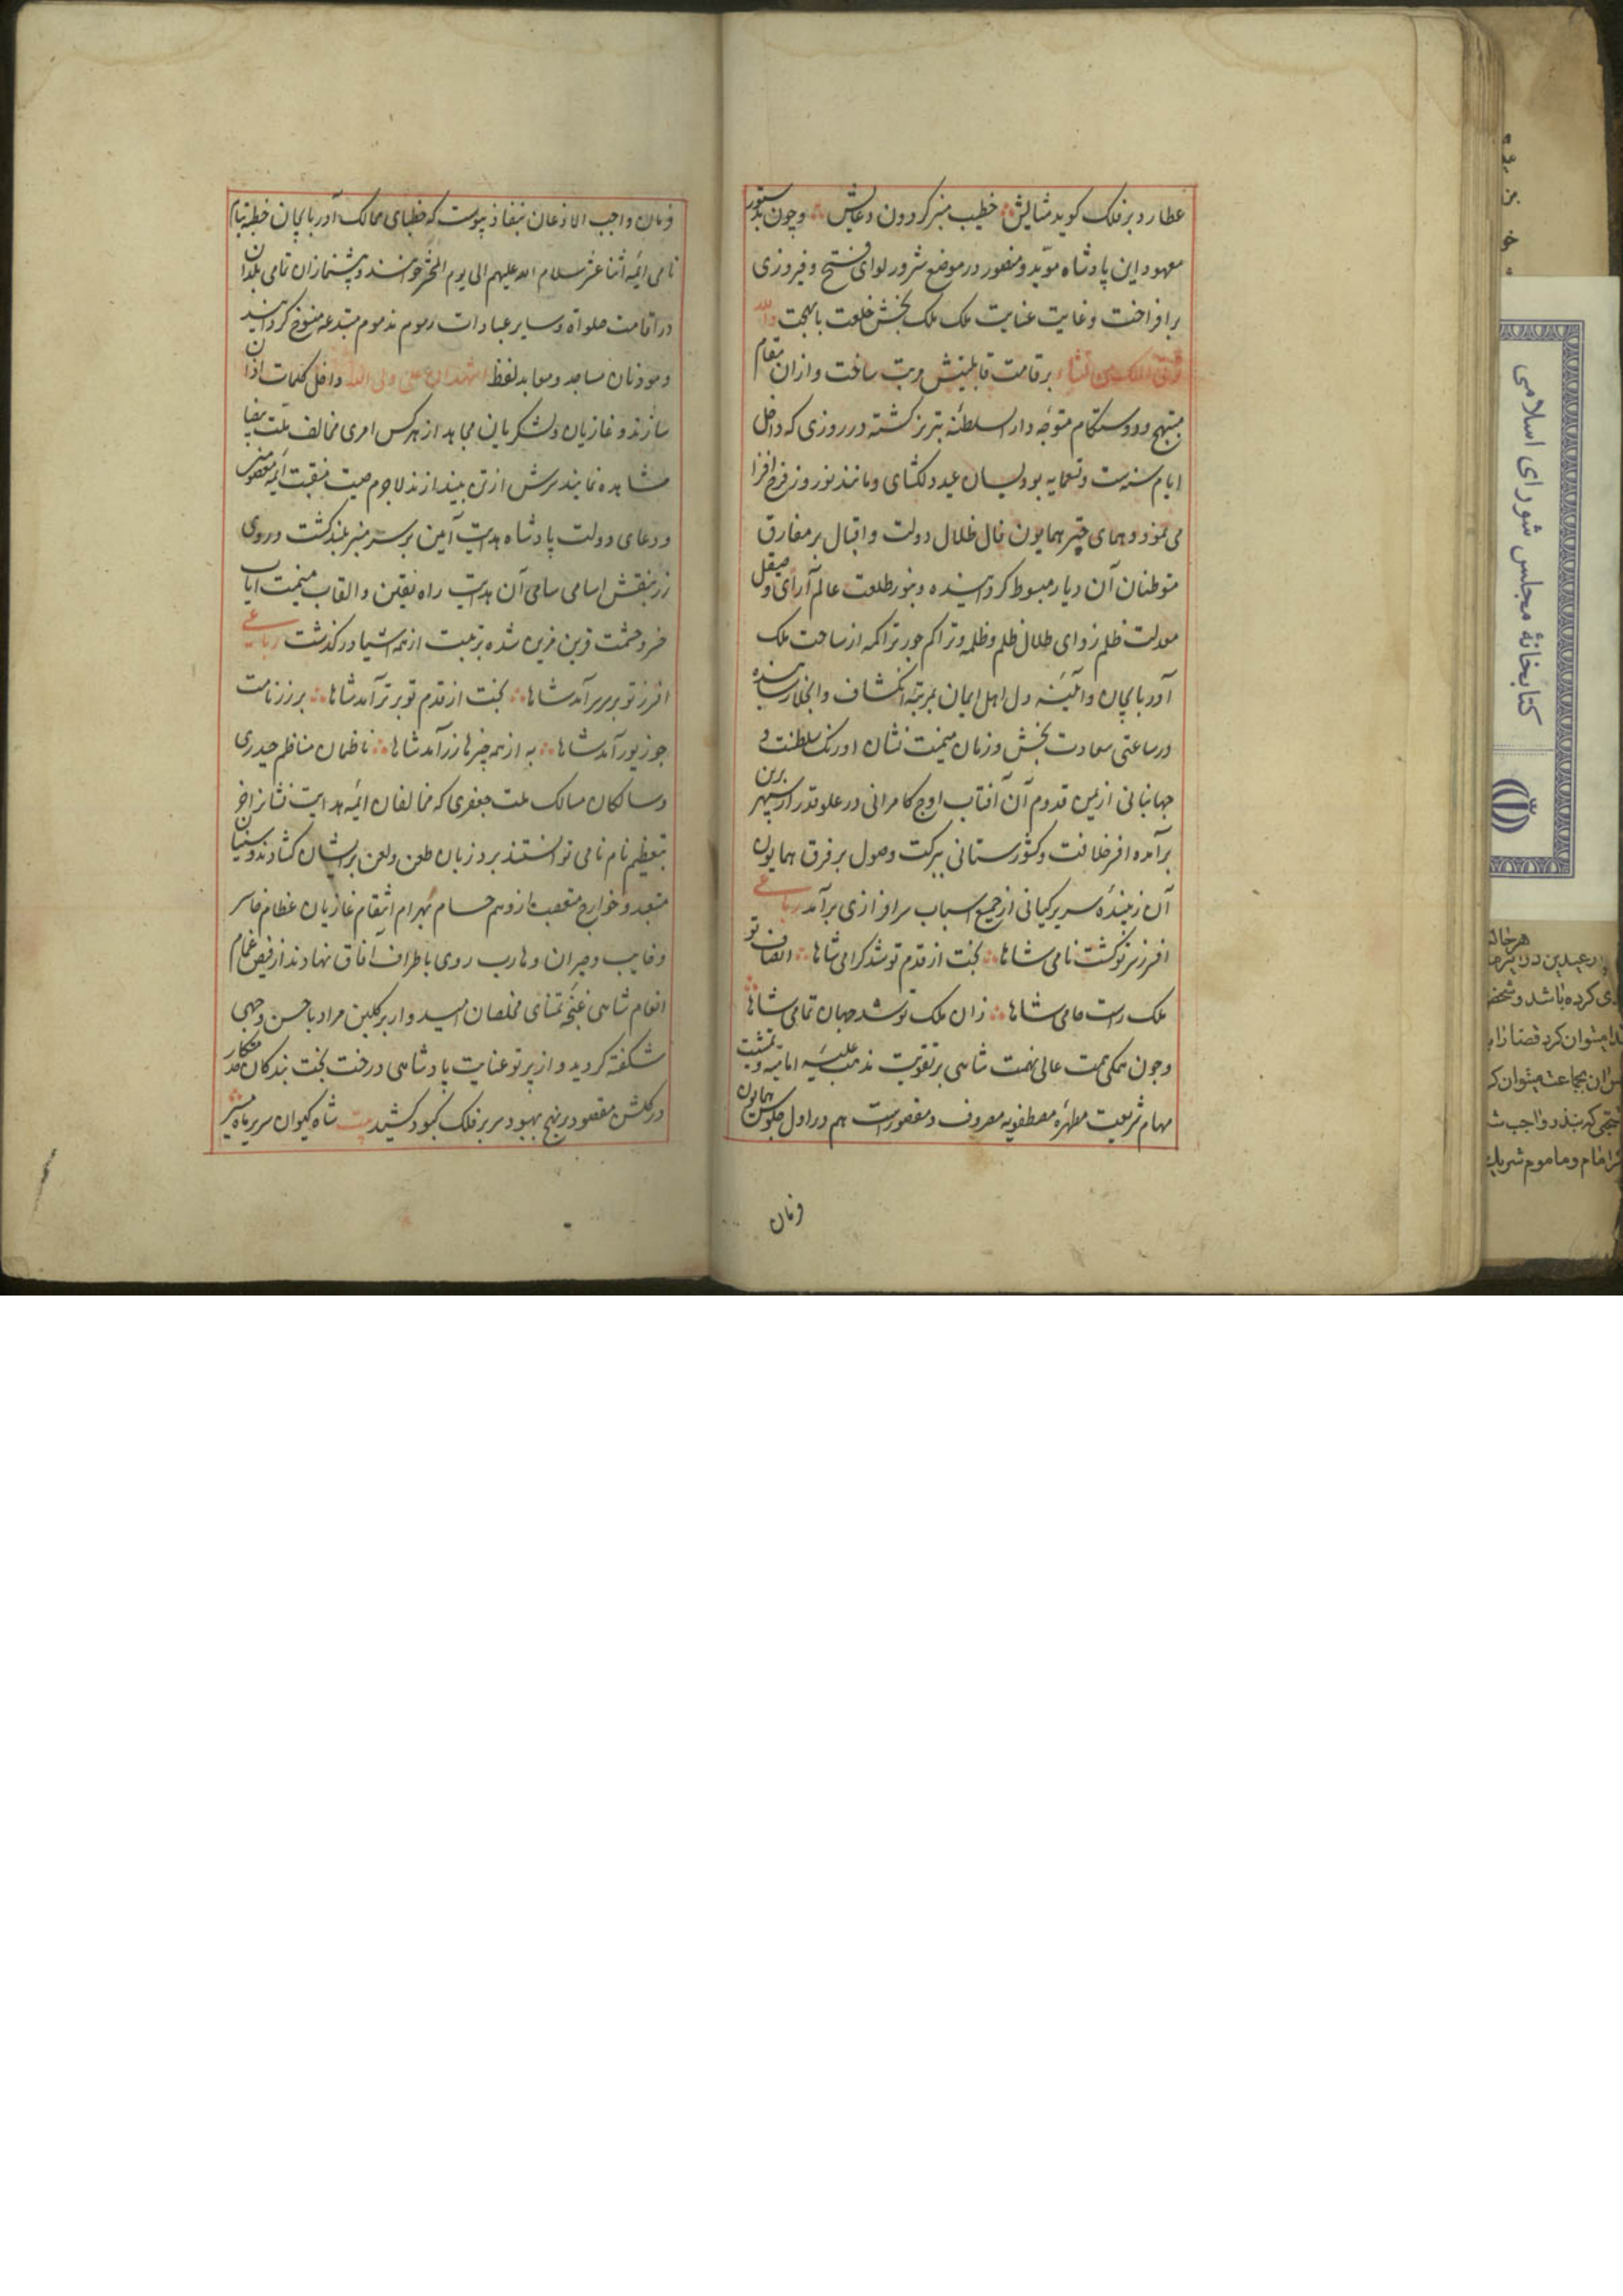 عطارد بر فلک کوید مثالیش خطیب منبر کردون دعایش وچون بدستور
معهود این پادشاه موید ومنصور در موضع شرور لوای فتح و فیروزی
برافراخت وغایت عنایت ملک ملک بخش خلعت با بهجت والله
یؤتی الملک من یشاء بر قامت قابلیتش مرتب ساخت و ازان مقام
مبتهج و دوستکام متوجه دار السلطنه تبریز کشته در روزی که داخل
ایام سنه ست وتسعمایه بود بسان عید دلکشای ومانند نوروز فرح افزا
می نمود وهمای چتر همایون فال ظلال دولت و اقبال بر مفارق
متوطنان آن دیار مبسوط کردانیده وبنور طلعت عالم آرای و صیقل
معدلت ظلم زدای ظلال ظلم وظلمه وتراکم جور تراکمه از ساحت ملک
آذربایجان وآئینه دل اهل ایمان بمرتبه انکشاف وانجلا رسانیده
در ساعتی سعادت بخش وزمان میمنت نشان اورنک سلطنت و
جهانبانی از یمن قدوم آن آفتاب اوج کامرانی در علو قدر از سپهر برین
برآمده افسر خلافت وکشورستانی ببرکت وصول بر فرق همایون
آن زیبنده سریر کیانی از جمیع اسباب سرافرازی برآمد رباعی
افسر ز سر تو کشت نامی شاها بخت از قدم تو شد کرامی شاها انصاف تو
ملک راست حامی شاها زان ملک تو شد جهان تمامی شاها
وچون همکی همت عالی نهمت شاهی بر تقویت مذهب علیه امامیه وتمشیت
مهام شریعت مطهره مصطفویه مصروف ومقصور است هم در اول جلوس همایون
فرمان
فرمان واجب الاذعان بنفاذ پیوست که خطبای ممالک آذربایجان خطبه بنام
نامی ائمه اثنا عشر سلام الله علیهم الی یوم المحشر خوانند وپیشنمازان تمامی بلدان
در اقامت صلواة وسایر عبادات رسوم مذموم مبتدعه منسوخ کردانند
وموذنان مساجد ومعابد لفظ اشهد ان علی ولی الله داخل کلمات اذان
سازند و غازیان ولشکریان مجاهد از هرکس امری مخالف ملت بیضا
مشاهده نمایند سرش از تن بیندازند لاجرم صیت منقبت ائمه معصومین
ودعای دولت پادشاه هدایت آیین بر سر منبر بلند کشت و روی
زر بنقش اسامی سامی آن هدایت راه یقین والقاب میمنت ایاب
خسرو حشمت قرین مزین شده برتبت از همه اشیا درکذشت رباعی
افسر ز تو بر سر آمد شاها بخت از قدم تو برتر آمد شاها بر زر نامت
چو زیور آمد شاها به از همه چیزها زر آمد شاها ناظمان مناظم حیدری
وسالکان مسالک ملت جعفری که مخالفان ائمه هدایت نشانرا جز
بتعظیم نام نامی توانستند برد زبان طعن ولعن بر ایشان کشادند وسنیان
متعبد وخوارج متعصب از وهم حسام بهرام انتقام غازیان عظام خاسر
وخایب وحیران وهارب روی باطراف آفاق نهادند از فیض غمام
انعام شاهی غنچه تمنای مخلصان امیدوار بر کلبن مراد باحسن وجهی
شکفته کردید و از پرتو عنایت پادشاهی درخت بخت بندکان
در کلشن مقصود بر نهج بهبود سر بر فلک کبود کشید بیت شاه کیوان سریر ماه مشیر
کتابخانهٔ مجلس شورای اسلامی